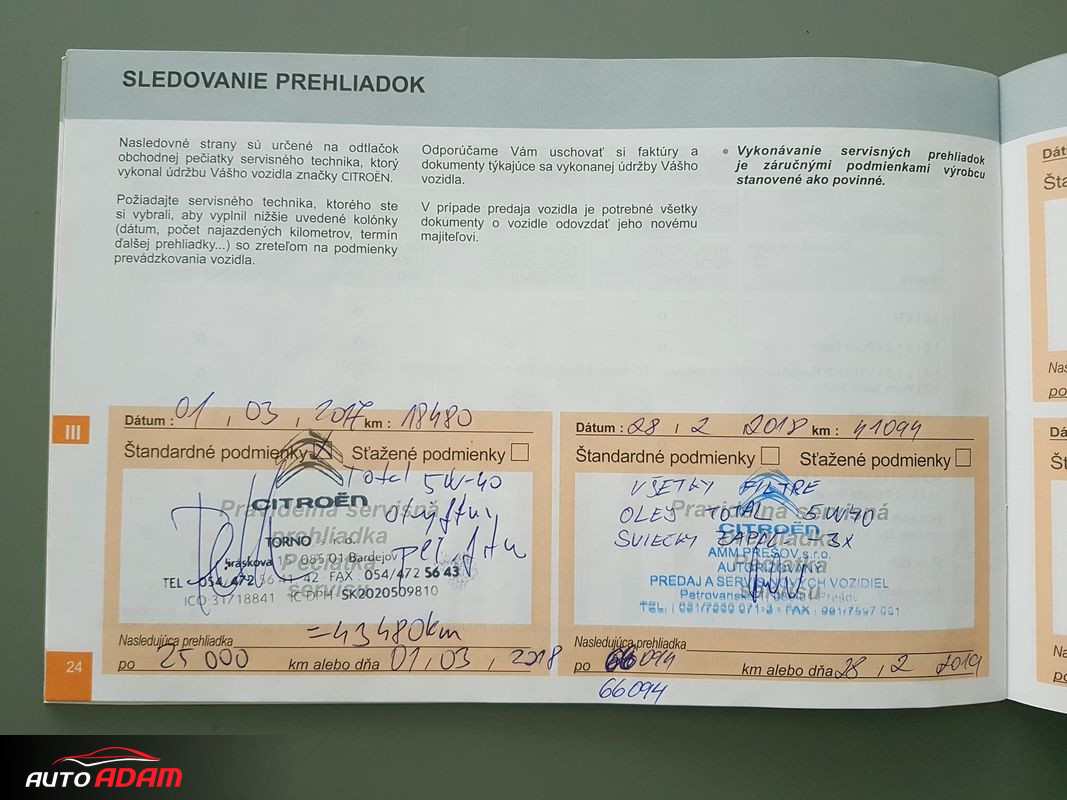 SLEDOVANIE PREHLIADOK
Nasledovné strany sú určené na odtlačok
obchodnej pečiatky servisného technika, ktorý
vykonal údržbu Vášho vozidla značky CITROËN.
Požiadajte servisného technika, ktorého ste
si vybrali, aby vyplnil nižšie uvedené kolónky
(dátum, počet najazdených kilometrov, termín
ďalšej prehliadky...) so zreteľom na podmienky
prevádzkovania vozidla.
Odporúčame Vám uschovať si faktúry a
dokumenty týkajúce sa vykonanej údržby Vášho
vozidla.
V prípade predaja vozidla je potrebné všetky
dokumenty o vozidle odovzdať jeho novému
majiteľovi.
• Vykonávanie servisných prehliadok
je záručnými podmienkami výrobcu
stanovené ako povinné.
III
Dátum : 01 / 03 / 2017 km : 18480
Štandardné podmienky Sťažené podmienky
Total 5W-40
CITROËN
Pravidelná servisná
prehliadka
Pečiatka
servisu
TORNO s.r.o.
085 01 Bardejov
TEL 054/472 56 41-42 FAX 054/472 56 43
IČO 31718841 IČ DPH SK2020509810
=43480km
Nasledujúca prehliadka
po 25 000 km alebo dňa 01, 03, 2018
Dátum : 28 / 2 2018 km : 41094
Štandardné podmienky Sťažené podmienky
VŠETKY FILTRE
Pravidelná servisná
OLEJ TOTAL 5W40
CITROËN
prehliadka
SVIEČKY ZAPAL - 3X
AMM PREŠOV s.r.o.
AUTORIZOVANÝ
Pečiatka
PREDAJ A SERVIS NOVÝCH VOZIDIEL
servisu
Nasledujúca prehliadka
po 66094 km alebo dňa 28, 2 2019
66094
24
Dát
Šta
Nas
po
Dá
Št
Na
po
AUTO ADAM